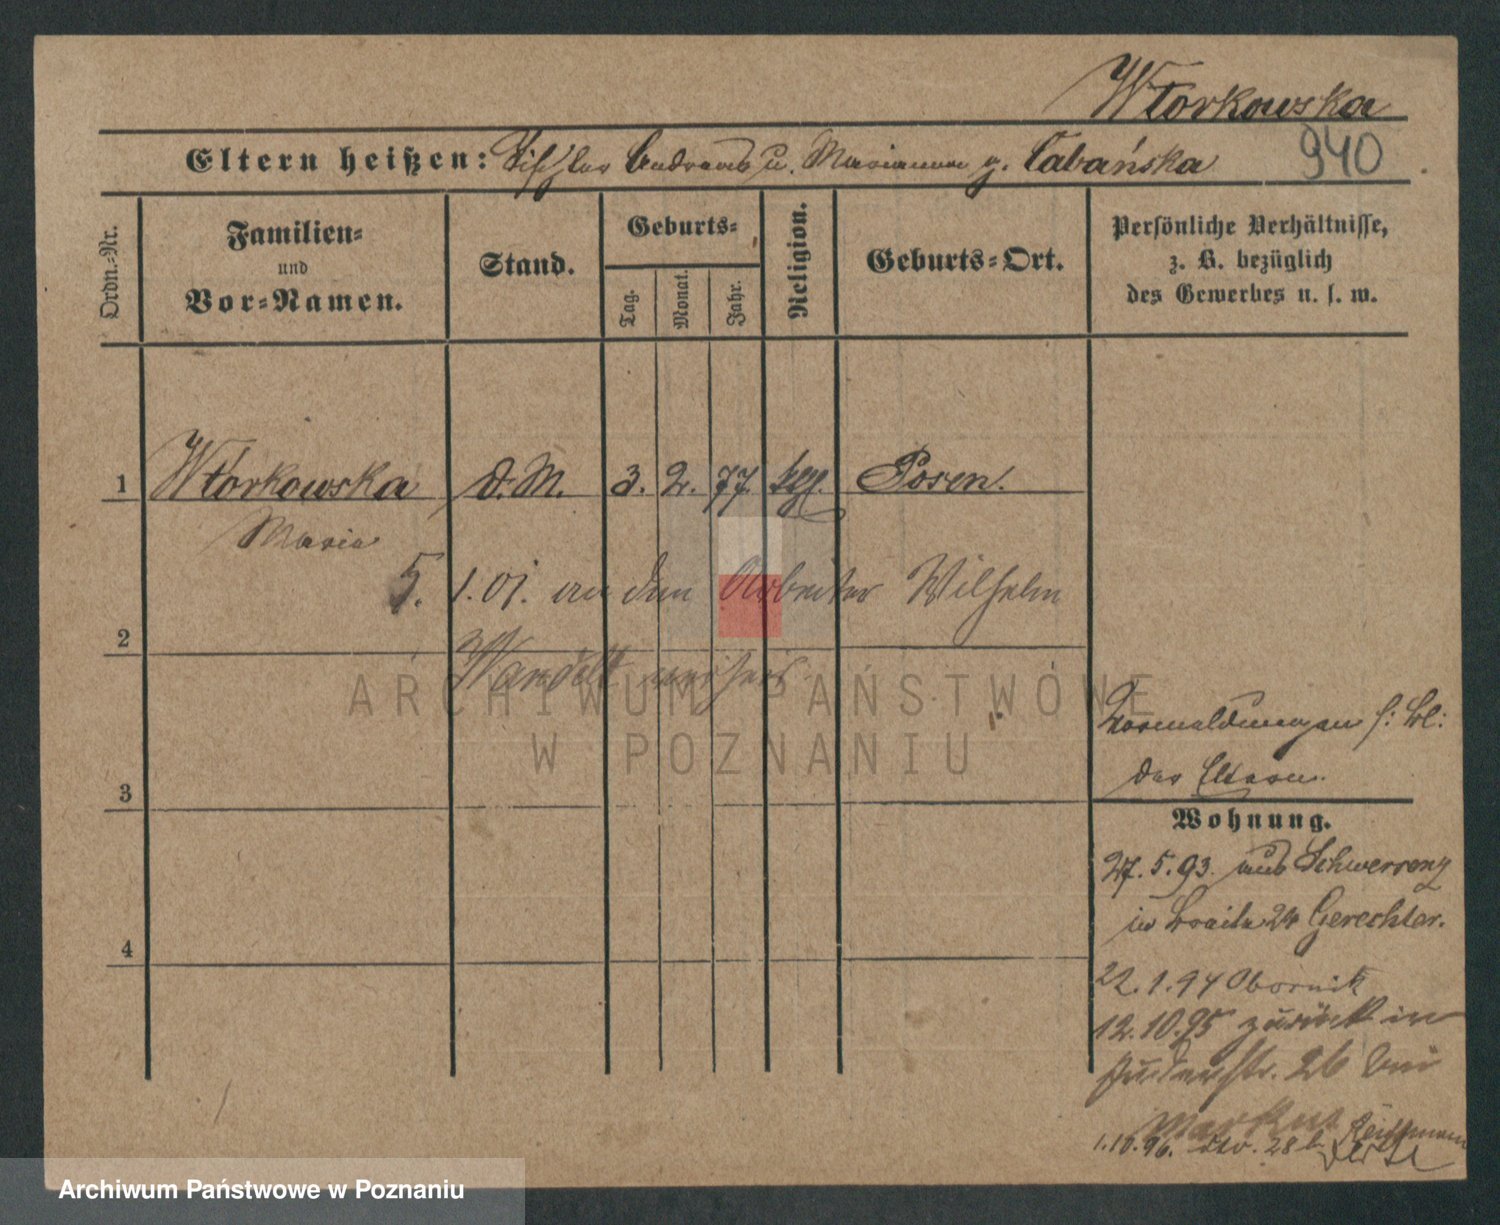 Wtorkowska
Eltern heißen: Tischler Andreas u. Marianna g. Cabańska
940
Ordn.-Nr.
Familien-
und
Vor-Namen.
Stand.
Geburts-
Tag.
Monat.
Jahr.
Religion.
Geburts-Ort.
Persönliche Verhältnisse,
z. B. bezüglich
des Gewerbes u. s. w.
1 Wtorkowska d. M. 3. 2. 77. kgl. Posen.
Maria
5. 1. 01. an den Arbeiter Wilhelm
2
Wandelt verheir.
ARCHIWUM PAŃSTWOWE
W POZNANIU
Vormeldungen s: Bl:
der Eltern.
3
Wohnung.
27. 5. 93. aus Schwersenz
in Breite 24 Gerechter.
4
22. 1. 94 Obornik
12. 10. 95 zurück in
Judenstr. 26 bei
Markus
1. 10. 96. dto. 28 b.
Archiwum Państwowe w Poznaniu